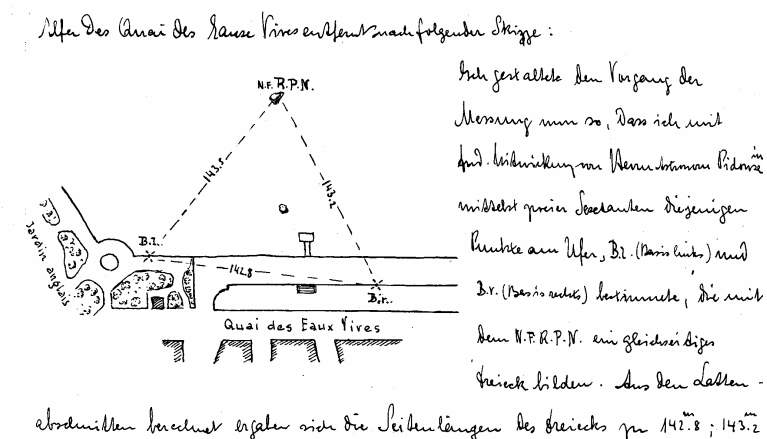 Ufer des Quai des Eaux Vives entfernt nach folgender Skizze:
N.F. R.P.N.
143.5
143.2
B.l.
142.8
B.r.
Jardin anglais
Quai des Eaux Vives
Ich gestaltete den Vorgang der
Messung nun so, dass ich mit
frdl. Mitwirkung von Herrn Astronom Pidoux
mittelst zweier Sextanten diejenigen
Punkte am Ufer, B.l. (Basis links) und
B.r. (Basis rechts) bestimmte, die mit
dem N.F.R.P.N. ein gleichseitiges
Dreieck bilden. Aus den Latten-
abschnitten berechnet ergaben sich die Seitenlängen des Dreiecks zu 142.8m; 143.2m